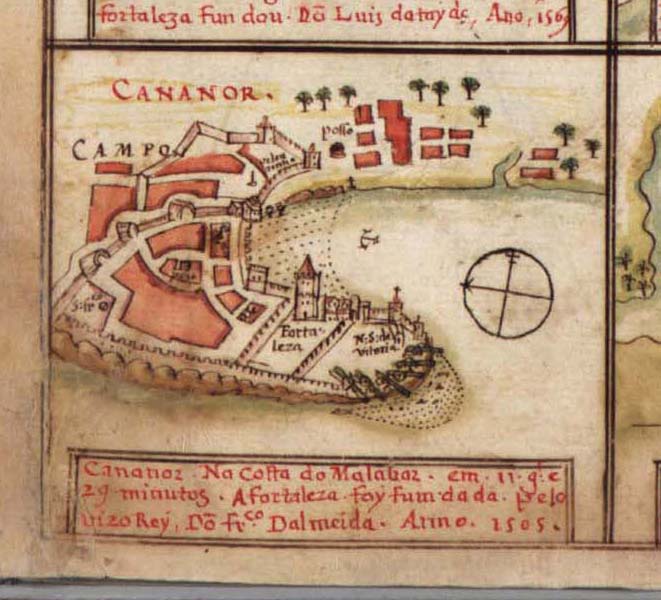 fortaleza fundou. Dõ Luis dataÿde, Ano, 1569
CANANOR.
CAMPO
posso
S: frco
Forta-
leza
N: S: da
Vitoria
Cananor. Na Costa do Malabar. em. 11. q. e
29. minutos. A fortaleza. foy fumdada. pelo
vizo Rey, Dõ Frco Dalmeida. Anno. 1505.